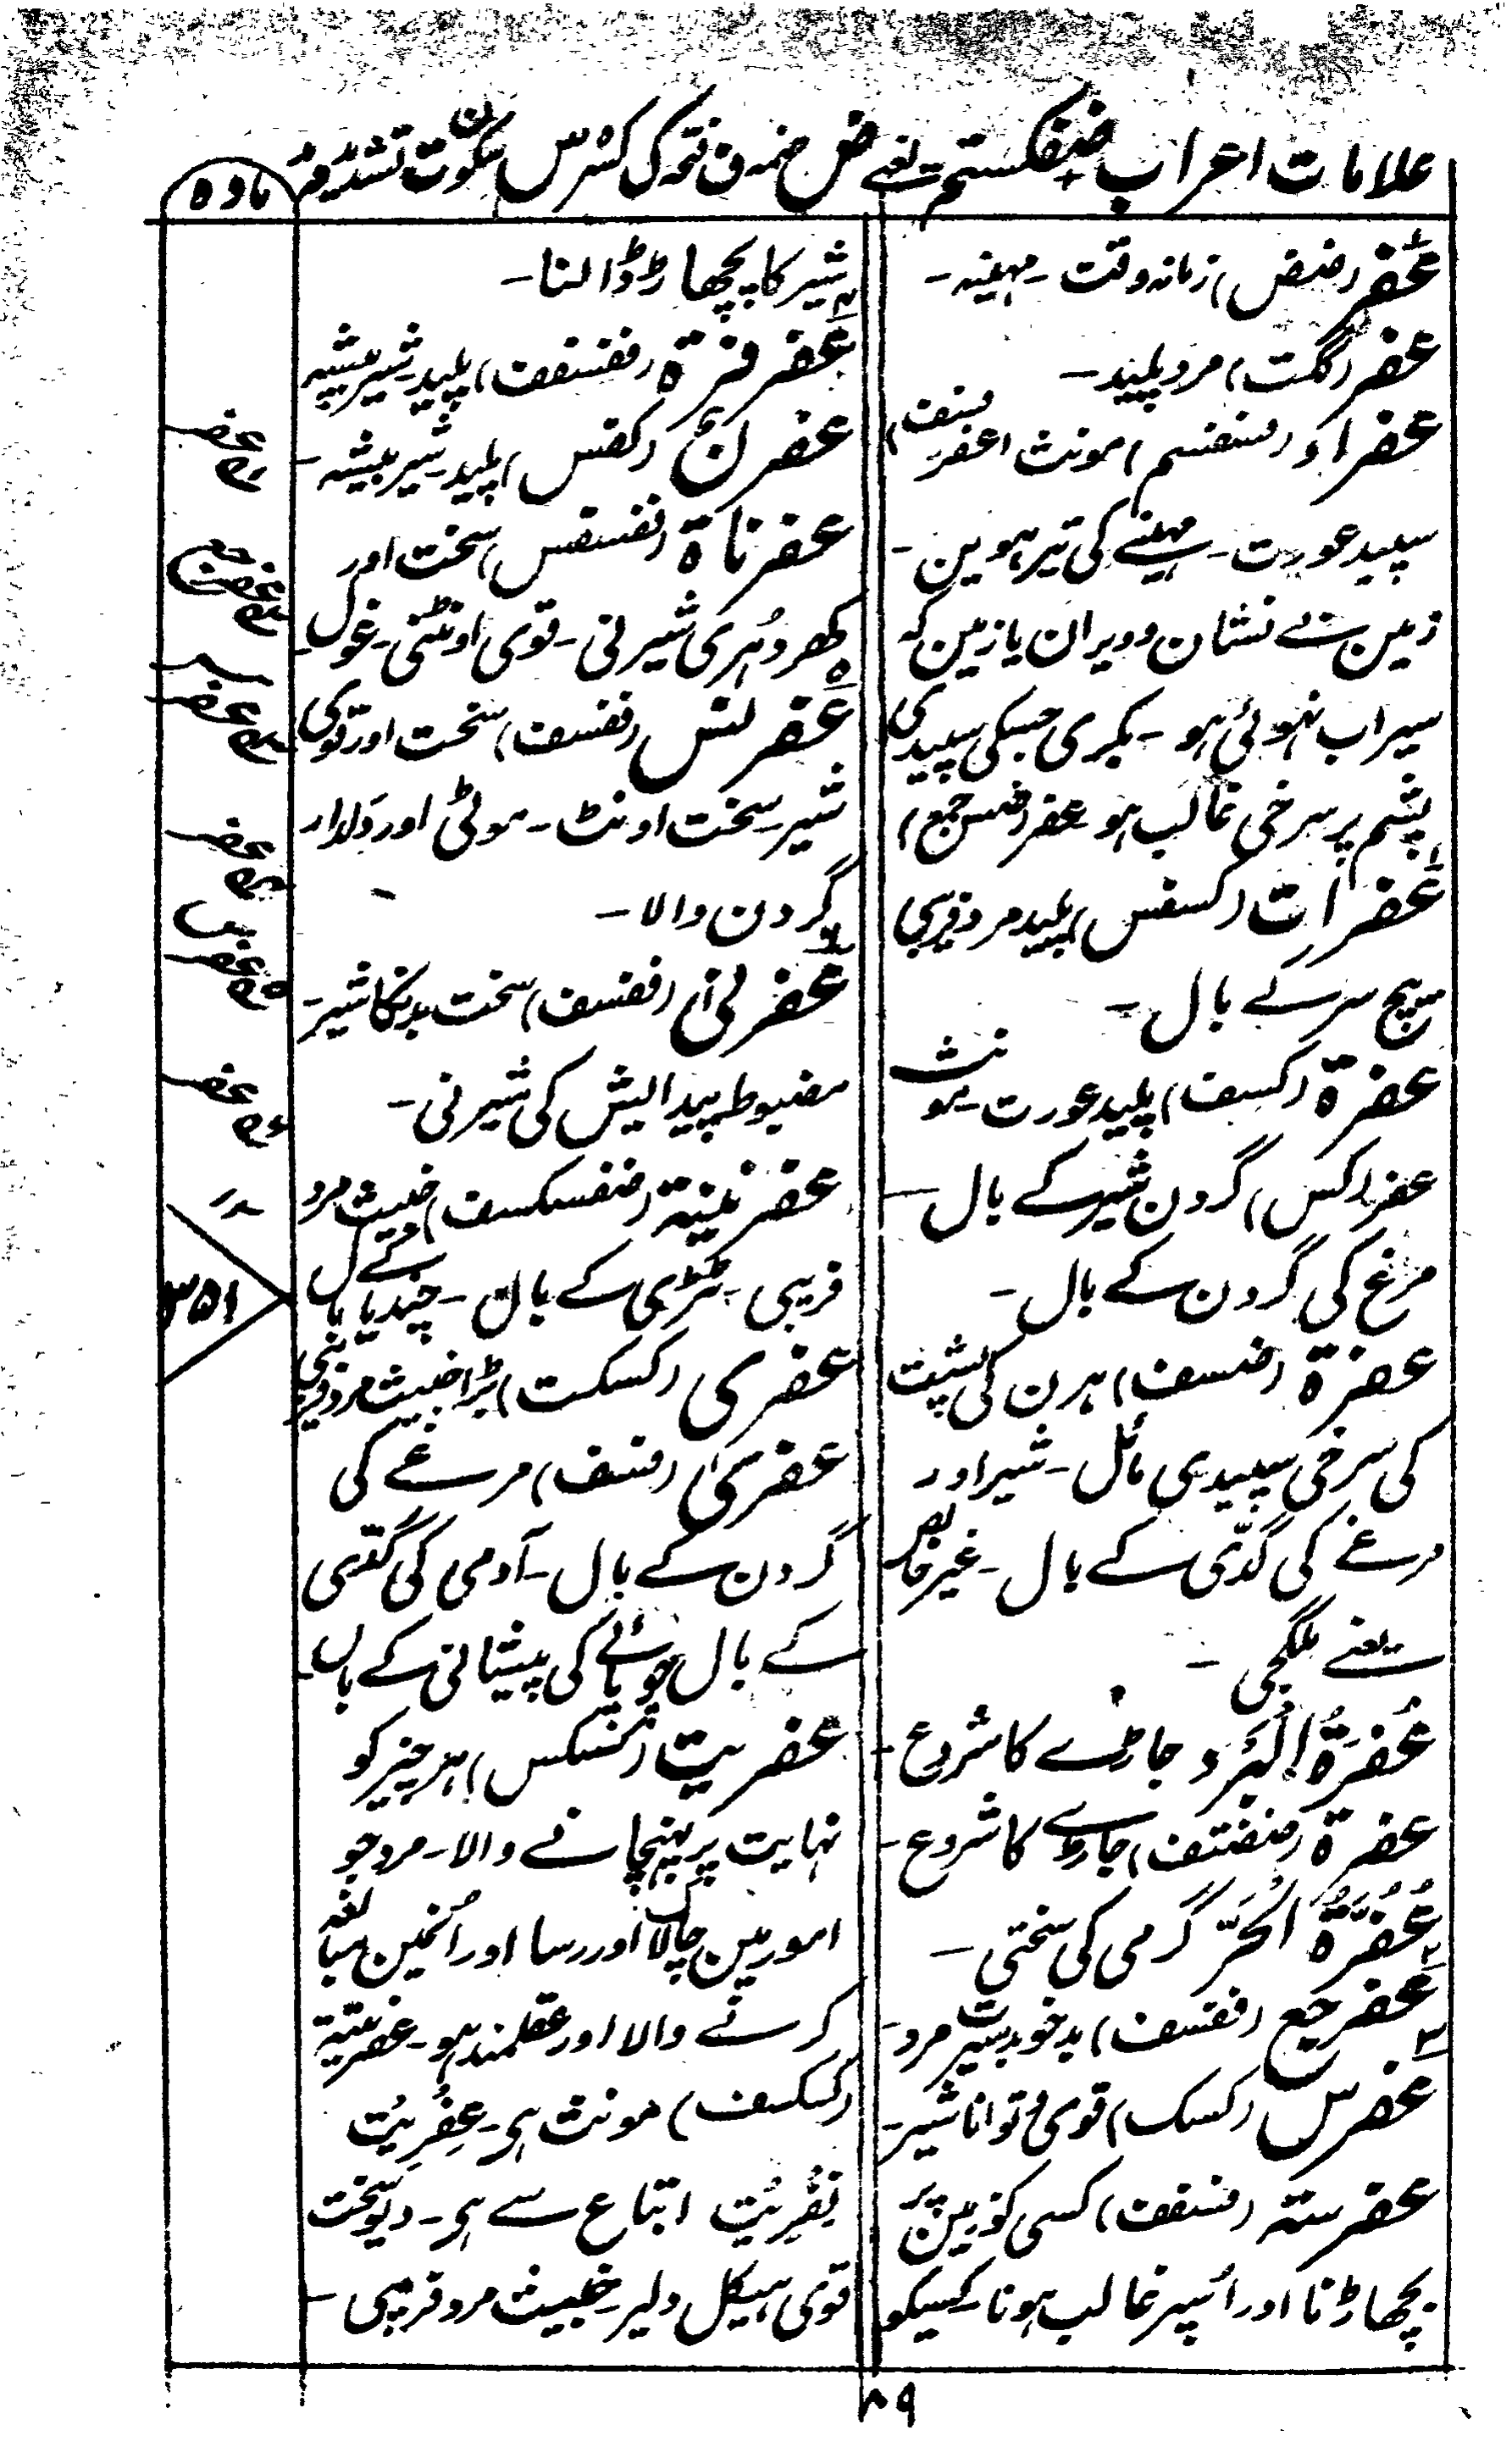 علامات اعراب ضفکستم یعنے ض ضمہ ف فتحہ ک کسرہ س سکون ت تشدید م مد
مادہ
عُفر (ضض) زمانہ وقت - مہینہ -
عفر (کت) مرد پلید -
عفراء (فسفسم) مونث اعفر
سپید عورت - مہینے کی تیرہوین -
زمین بے نشان و ویران یا زمین کہ
سیراب نہوئی ہو - بکری جسکی سپیدی کی
پشم پر سرخی غالب ہو عفر (ضس جمع)
عفرات (کسفس) پلید مرد فریبی
بیچ سر کے بال -
عفرۃ (کسف) پلید عورت - مونث
عفر (کس) گردن شیر کے بال -
مرغ کی گردن کے بال -
عفرۃ (ضسف) ہرن کی پشت
کی سرخی سپیدی مائل - شیر اور
مرغے کی گدّی کے بال - غیر خالص
یعنے ملگجی -
عُفرَۃُ البَرد جاڑے کا شروع -
عفرۃ (ضضتف) جاڑے کا شروع -
عُفُرَّۃُ الحَرّ گرمی کی سختی -
عفرجع (ففسف) بدخو بدسیرت مرد -
عفرس (کسک) قوی و توانا شیر -
عفرستہ (فسفف) کسی کو زمین پر
پچھاڑنا اور اسپر غالب ہونا - کسیکو
شیر کا پچھاڑ ڈالنا -
عفرفرۃ (ففسفف) پلید - شیر بیشہ
عفرن (کفس) پلید - شیر بیشہ -
عفرناۃ (ففسفس) سخت اور
کھردُہری شیرنی - قوی اونٹنی - غول -
عفرنس (ففسف) سخت اور قوی
شیر - سخت اونٹ - موٹی اور دَلدار
گردن والا -
عفرنی (ففسف) سخت بدنکا شیر -
مضبوط پیدایش کی شیرنی -
عفرنیۃ (ضفسکسف) خبیث مرد
فریبی - ٹٹڑی کے بال - چندیا کے بال
عفری (کسکت) بڑا خبیث مرد فریبی
عفرىٰ (فسف) مرغے کی
گردن کے بال - آدمی کی گدّی
کے بال چوپائے کی پیشانی کے بال -
عفریت (کسکس) ہر چیز کو
نہایت پر پہنچانے والا - مرد جو
امور مین چالاک اور رسا اور اُنمین مبالغہ
کرنے والا اور عقلمند ہو - عفریتۃ
(کسکسف) مونث ہی - عِفْرِیُت
نِفْرِیُت اتباع سے ہی - دیو سخت
قوی ہیکل دلیر - خبیث مرد فریبی -
عفر
عفر
عفر
عفر
عفر
۳۵۱
۸۹